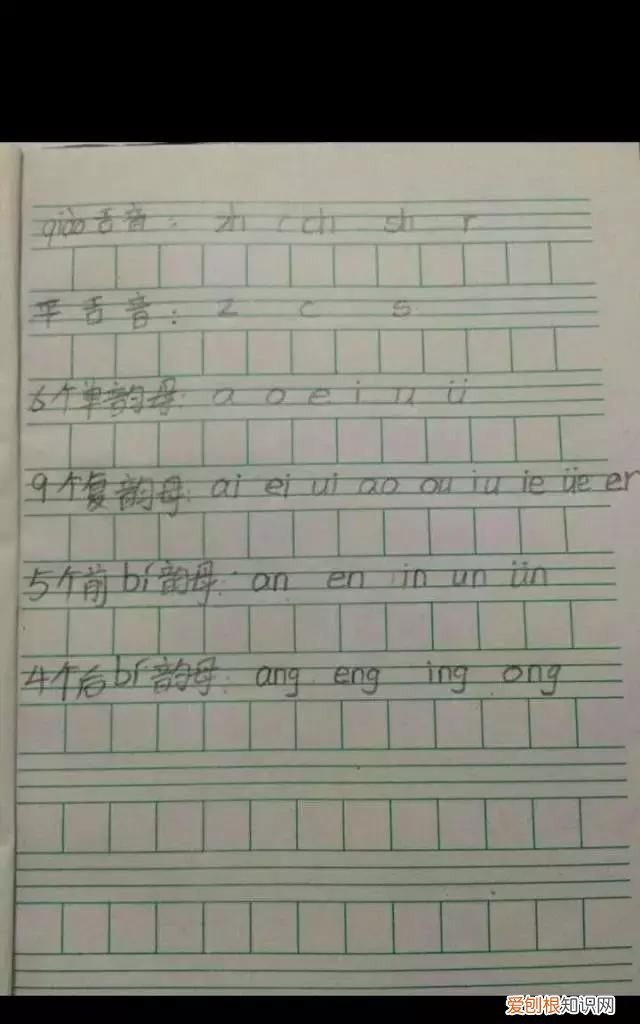 qiào舌音：zh ch sh r
平舌音：z c s
6个单韵母：a o e i u ü
9个复韵母：ai ei ui ao ou iu ie üe er
5个前bí韵母：an en in un ün
4个后bí韵母：ang eng ing ong
爱刨根知识网